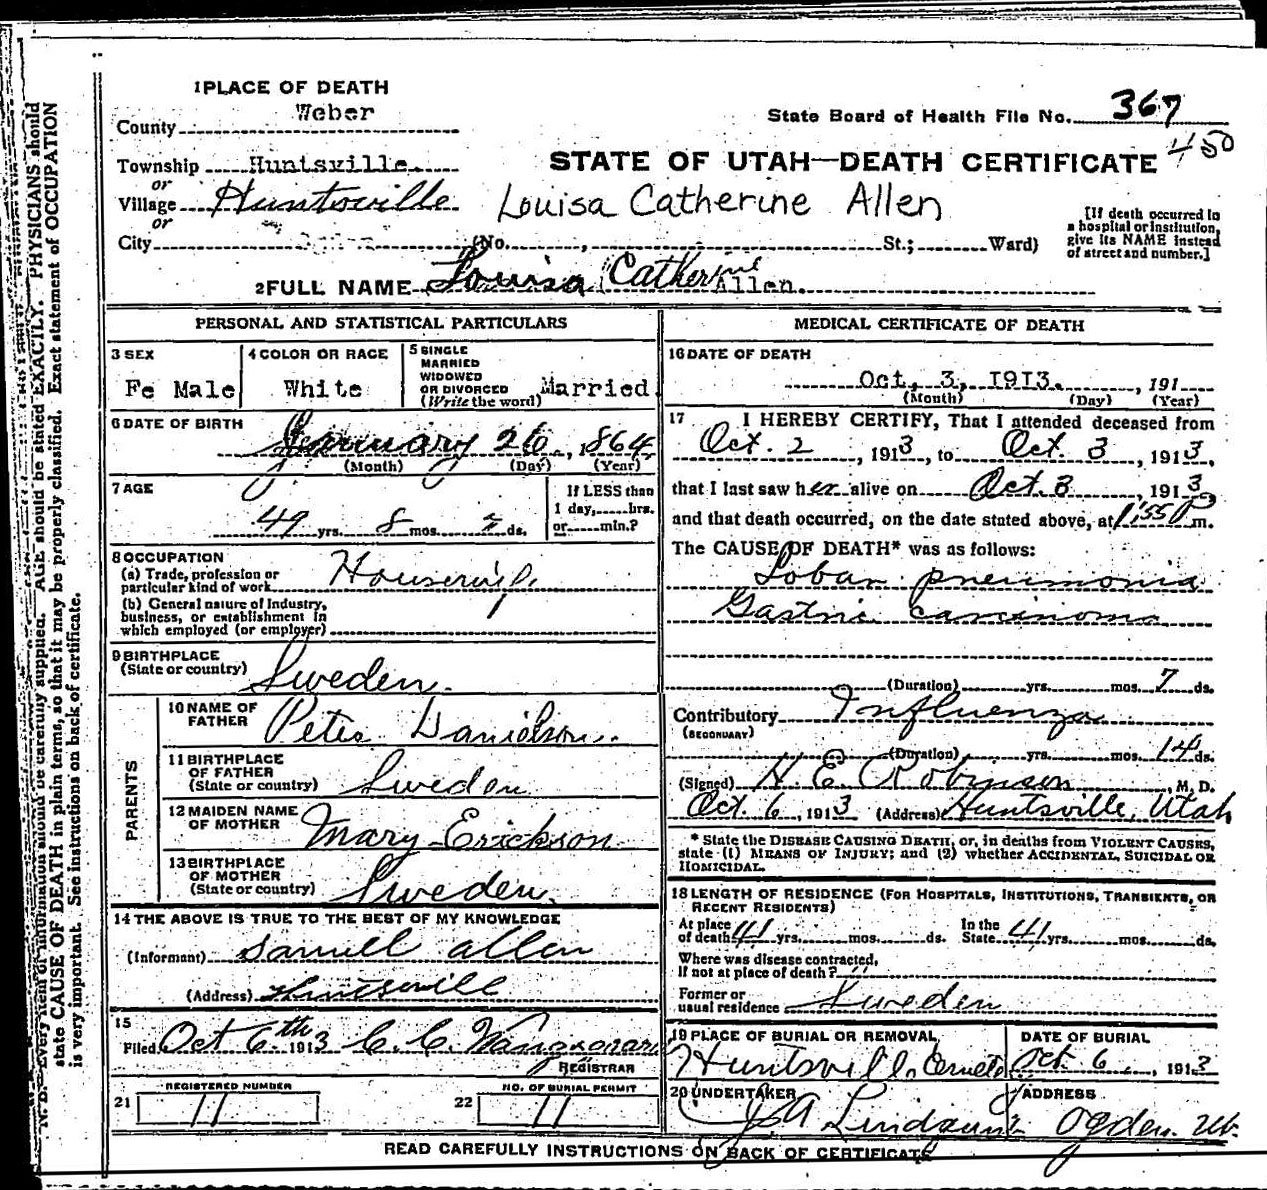 1 PLACE OF DEATH
County Weber
State Board of Health File No. 367
450
Township Huntsville.
or
Village Huntsville
or
City (No. , St.; Ward)
STATE OF UTAH—DEATH CERTIFICATE
Louisa Catherine Allen
[If death occurred in
a hospital or institution,
give its NAME instead
of street and number.]
2 FULL NAME Louisa Catherine Allen.
PERSONAL AND STATISTICAL PARTICULARS
3 SEX
Fe Male
4 COLOR OR RACE
White
5 SINGLE
MARRIED
WIDOWED
OR DIVORCED
(Write the word) Married
6 DATE OF BIRTH
January 26, 1864
(Month) (Day) (Year)
7 AGE
49 yrs. 8 mos. 7 ds.
If LESS than
1 day, hrs.
or min.?
8 OCCUPATION
(a) Trade, profession or
particular kind of work Housewife
(b) General nature of Industry,
business, or establishment in
which employed (or employer)
9 BIRTHPLACE
(State or country) Sweden.
PARENTS
10 NAME OF
FATHER Peter Danielson.
11 BIRTHPLACE
OF FATHER
(State or country) Sweden
12 MAIDEN NAME
OF MOTHER Mary Erickson
13 BIRTHPLACE
OF MOTHER
(State or country) Sweden.
14 THE ABOVE IS TRUE TO THE BEST OF MY KNOWLEDGE
(Informant) Samuel Allen
(Address) Huntsville
15
Filed Oct 6th 1913 C. C.
REGISTRAR
REGISTERED NUMBER
21 11
NO. OF BURIAL PERMIT
22 11
MEDICAL CERTIFICATE OF DEATH
16 DATE OF DEATH
Oct, 3, 1913. , 191
(Month) (Day) (Year)
17 I HEREBY CERTIFY, That I attended deceased from
Oct. 2 , 1913, to Oct. 3 , 1913,
that I last saw her alive on Oct. 3 , 1913,
and that death occurred, on the date stated above, at 1:55 P m.
The CAUSE OF DEATH* was as follows:
Lobar pneumonia
Gastric carcinoma
(Duration) yrs. mos. 7 ds.
Contributory Influenza
(SECONDARY)
(Duration) yrs. mos. 14 ds.
(Signed) H. E. Robinson , M. D.
Oct. 6, 1913 (Address) Huntsville, Utah
* State the DISEASE CAUSING DEATH, or, in deaths from VIOLENT CAUSES,
state (1) MEANS OF INJURY; and (2) whether ACCIDENTAL, SUICIDAL OR
HOMICIDAL.
18 LENGTH OF RESIDENCE (FOR HOSPITALS, INSTITUTIONS, TRANSIENTS, OR
RECENT RESIDENTS)
At place
of death 41 yrs. mos. ds.
In the
State 41 yrs. mos. ds.
Where was disease contracted,
if not at place of death?
Former or
usual residence Sweden
19 PLACE OF BURIAL OR REMOVAL
Huntsville
DATE OF BURIAL
Oct. 6 , 1913
20 UNDERTAKER
ADDRESS
Ogden Ut.
READ CAREFULLY INSTRUCTIONS ON BACK OF CERTIFICATE
N. B.—Every item of information should be carefully supplied. AGE should be stated EXACTLY. PHYSICIANS should
state CAUSE OF DEATH in plain terms, so that it may be properly classified. Exact statement of OCCUPATION
is very important. See instructions on back of certificate.